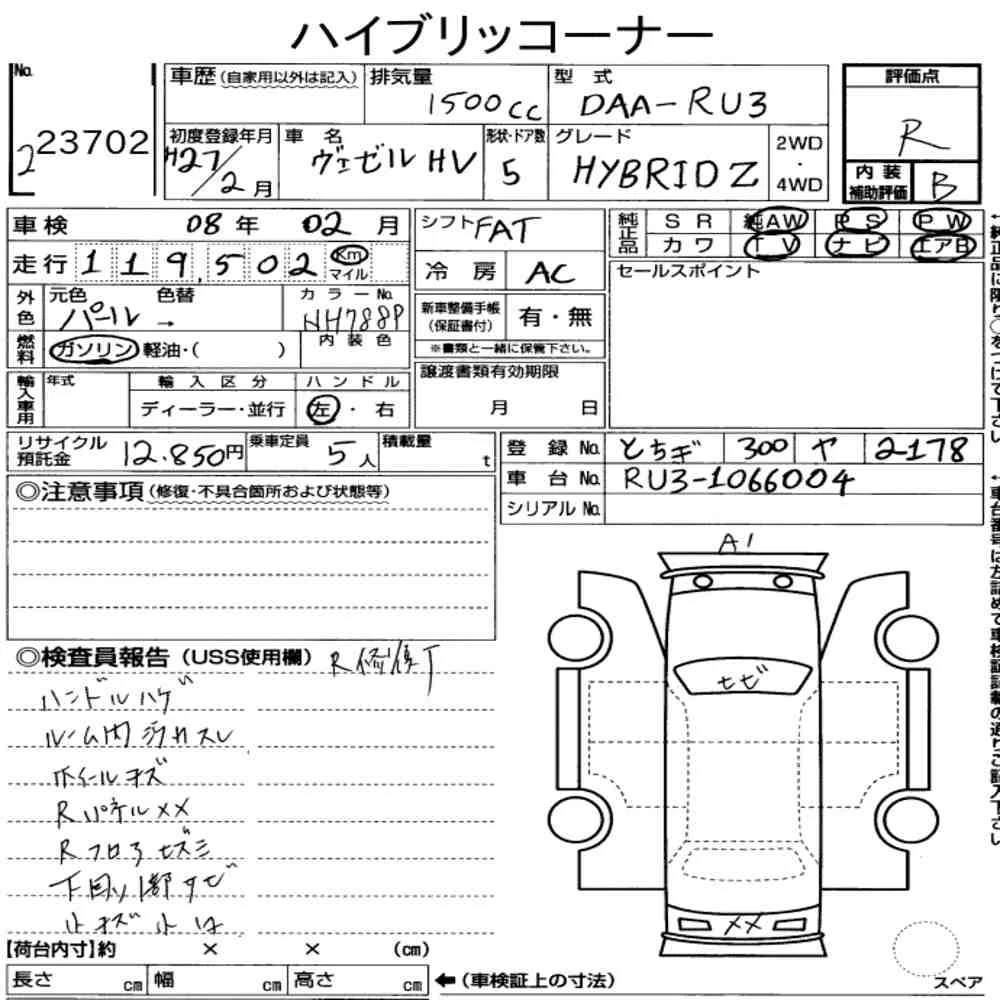 ハイブリッコーナー
No.
2 23702
車歴(自家用以外は記入)
排気量 1500cc
型式 DAA-RU3
評価点 R
初度登録年月 H27/2月
車名 ヴェゼルHV
形状・ドア数 5
グレード HYBRID Z
2WD・4WD
内装補助評価 B
車検 08年 02月
シフト FAT
純正品 SR 純AW PS PW
カワ TV ナビ エアB
走行 119,502 Km マイル
冷房 AC
セールスポイント
外色 元色 パール → 色替
カラーNo. NH788P
新車整備手帳(保証書付) 有・無
※書類と一緒に保管下さい。
燃料 ガソリン 軽油・( )
内装色
譲渡書類有効期限
月 日
輸入車用 年式
輸入区分 ディーラー・並行
ハンドル 左・右
リサイクル預託金 12.850円
乗車定員 5人
積載量 t
登録No. とちぎ 300 ヤ 2178
車台No. RU3-1066004
シリアルNo.
◎注意事項(修復・不具合箇所および状態等)
◎検査員報告(USS使用欄) R修復
ハンドルハゲ
ルーム内
ホイールキズ
RパネルXX
Rフロア
下回り 部サビ
小キズ小
A1
XX
【荷台内寸】約 × × (cm)
長さ cm 幅 cm 高さ cm
←(車検証上の寸法)
スペア
↑純正品に限り○をつけて下さい
↑車台番号は左詰めで車検証記載の通りご記入下さい